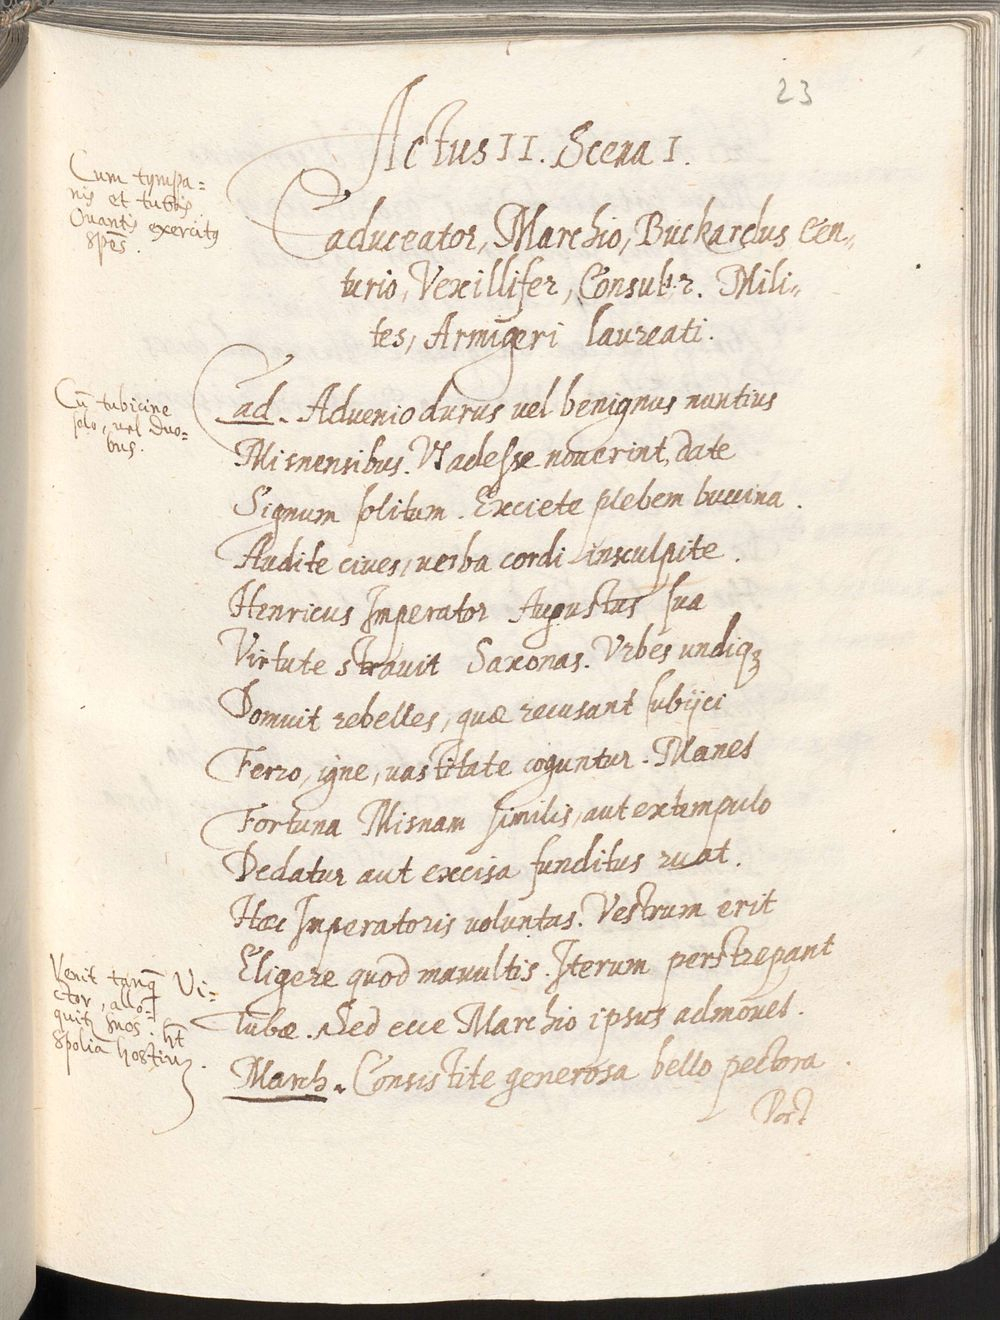 23
Actus II. Scena I.
Cum tympa=
nis et tubis
Ovantis exercitus
spēs.
Caduceator, Marchio, Buckardus Cen„
turio, Vexillifer, Consul. Mili„
tes, Armigeri laureati.
Cū tubicine
solo, vel duo=
bus.
Cad. Advenio durus vel benignus nuntius
Misnensibus. Vt adesse noverint, date
Signum solitum. Exciete plebem buccina.
Audite cives, verba cordi insculpite.
Henricus Imperator Augustus sua
Virtute stravit Saxonas. Vrbes undiqꝫ
Domuit rebelles, quæ recusant subijci
Ferro, igne, vastitate coguntur. Manet
Fortuna Misnam similis, aut extempulo
Dedatur aut excisa funditus ruat.
Hæc Imperatoris voluntas. Vestrum erit
Eligere quod mavultis. Iterum perstrepant
Tubæ. Sed ecce Marchio ipsus admovet.
Venit tanq̄ Vi=
ctor, allo=
quitꝫ suos. h̄t
Spolia hostiū.
March. Consistite generosa bello pectora.
Post